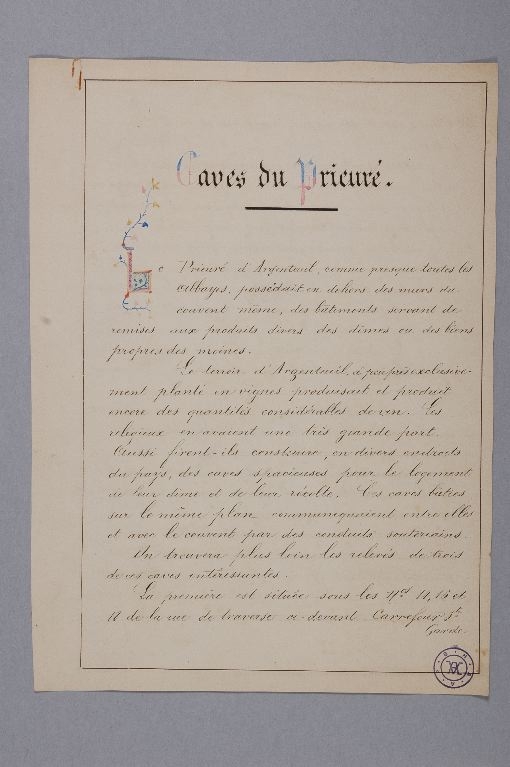 Caves du Prieuré.
Le Prieuré d'Argenteuil, comme presque toutes les
abbayes, possédait en dehors des murs du
couvent même, des bâtiments servant de
remises aux produits divers des dîmes ou des biens
propres des moines.
Le terroir d'Argenteuil, à peu près exclusive-
ment planté en vignes produisait et produit
encore des quantités considérables de vin. Les
religieux en avaient une très grande part.
Aussi firent-ils construire, en divers endroits
du pays, des caves spacieuses pour le logement
de leur dîme et de leur récolte. Ces caves bâties
sur le même plan communiquaient entre elles
et avec le couvent par des conduits souterrains.
On trouvera plus loin les relevés de trois
de ces caves intéressantes.
La première est située sous les Nos 11, 15 et
de la rue de traverse ci-devant Carrefour St